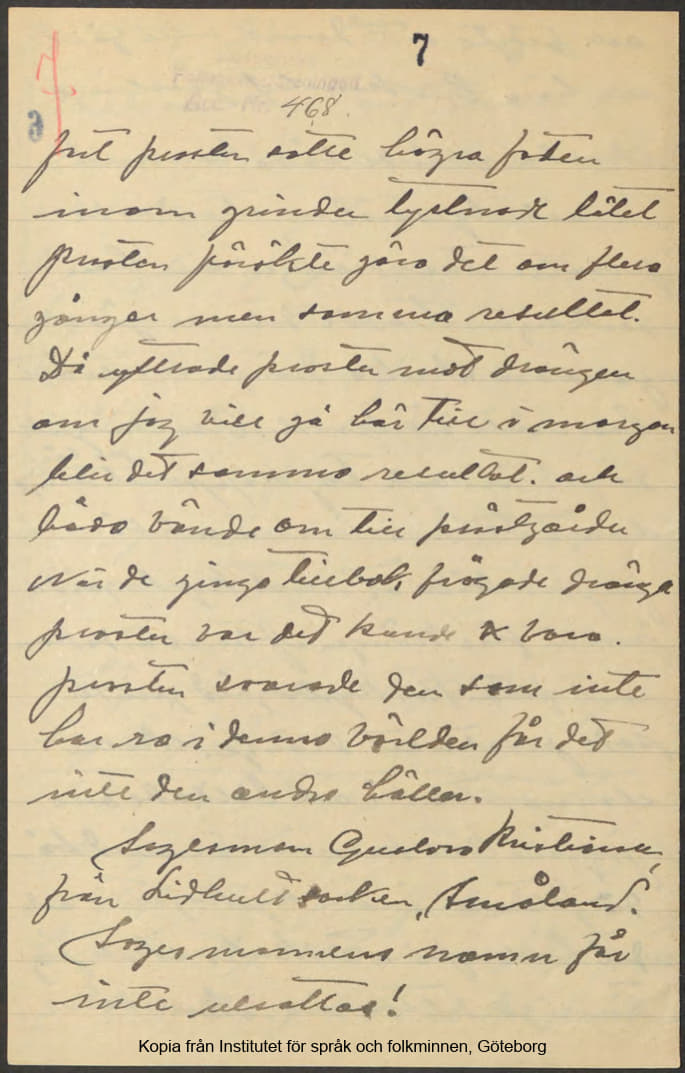 7
7.
9
468.
fort prosten satte högra foten
inom grinden tystnade lätet
prosten försökte göra det om flera
gånger men samma resultat.
Då yttrade prosten mot drängen
om jag vill gå här till i morgon
blir det samma resultat. och
båda vände om till prästgården
När de gingo tillbak, frågade drängen
prosten var det kunde vara.
prosten svarade den som inte
har ro i denna världen får det
inte den andra häller.
Sagesman Gustav Kristiansen,
från Lidhult socken, Småland.
Sagesmannens namn får
inte utsättas!
Kopia från Institutet för språk och folkminnen, Göteborg